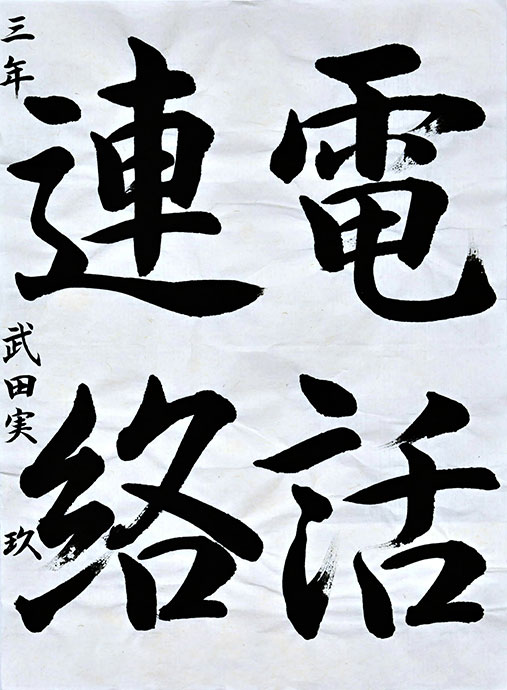 電話
連絡
三年 武田実玖